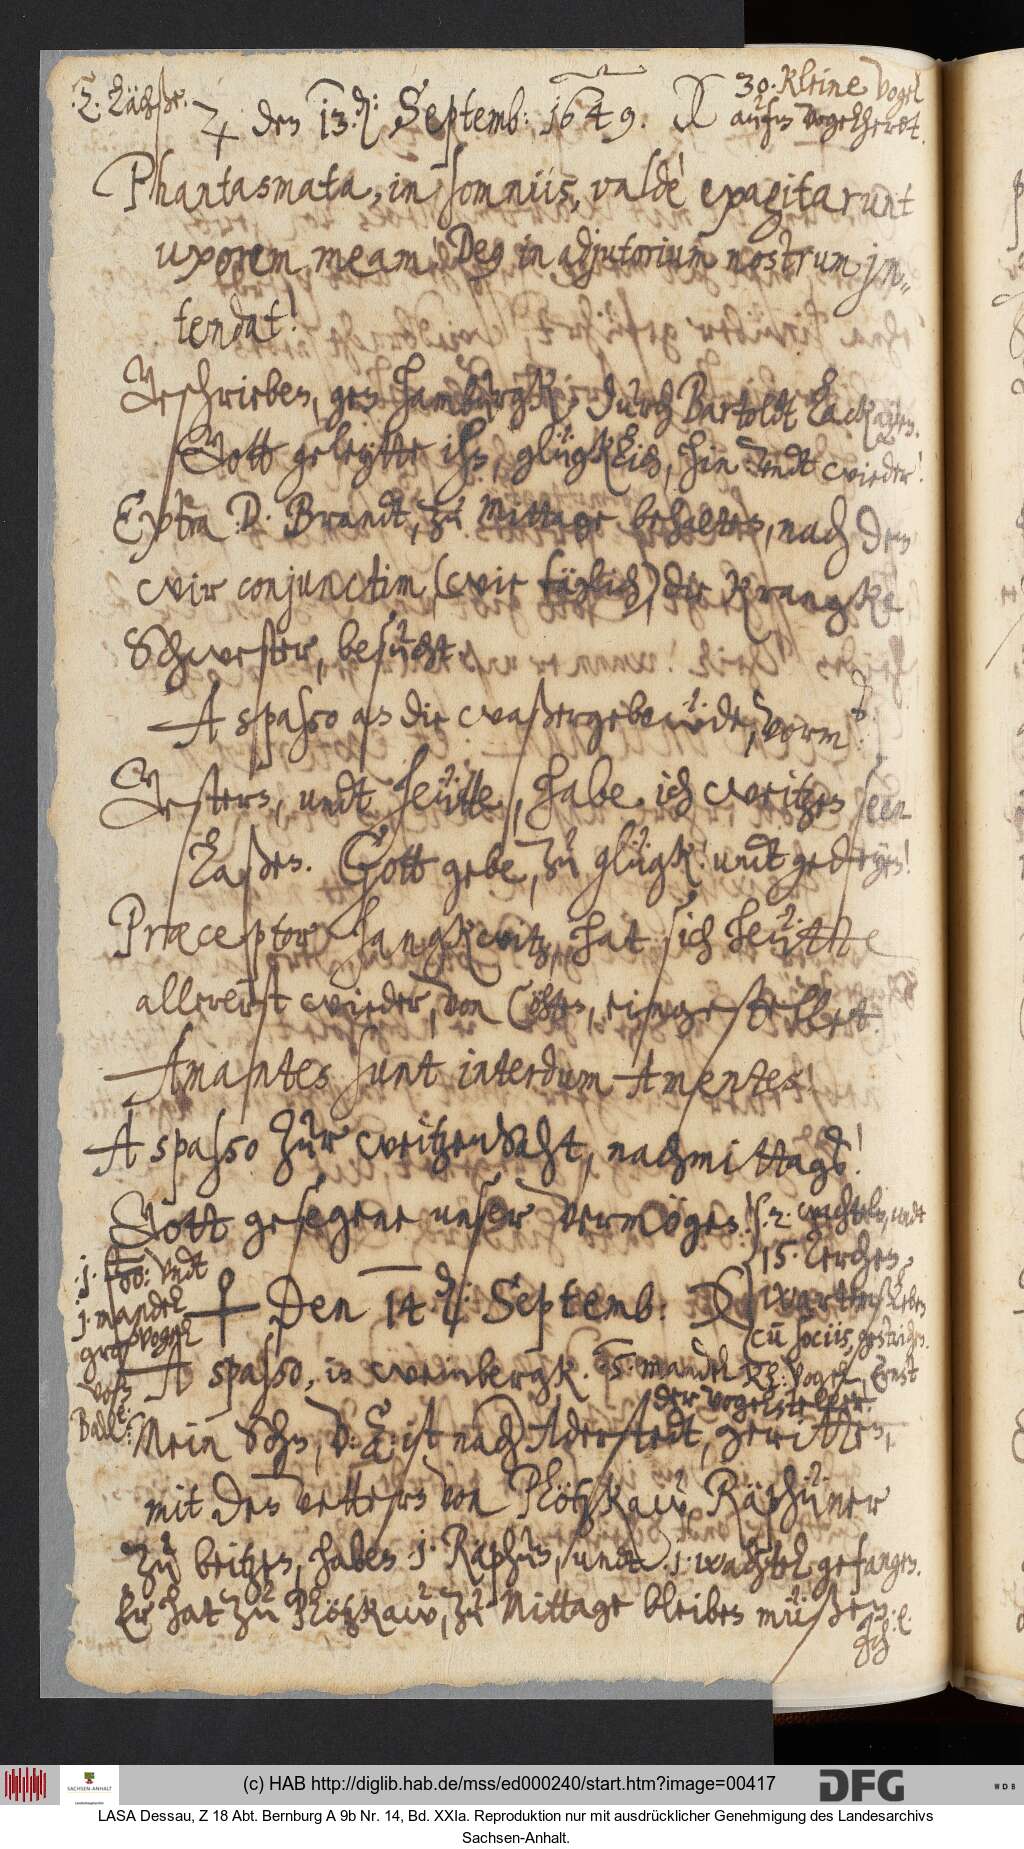 2. Lächße.
♃ den 13.d: Septemb: 1649.
30. kleine Vogel
aufm Vogelherdt.
Phantasmata, in somniis, valdè exagitarunt
uxorem meam! Deus in adjutorium nostrum in-
tendat!
Geschrieben, gen Hamburgk, durch Bartoldt Lackayen.
Gott geleytte ihn, glügklich, hin undt wieder!
Extra D. Brandt, zu Mittage behalten, nach dem
wir conjunctim (wie täglich) die Krangke
Schwester, besucht.
A spasso an die waßergebeüde, vorm
Gestern, undt heütte, habe ich weitzen seen
laßen. Gott gebe, zu glügk! undt gedeyen!
Præceptor Jangkwitz, hat sich heütte
allererst wieder, von Cöhten, eingestellet.
Amantes sunt interdum Amentes!
A spasso zur weitzensaht, nachmittags!
Gott gesegene unser vermögen!
2. wachteln, undt
15. Lerchen,
cu sociis, gestrichen.
1. ßo: undt
1. mandel
großvogel
vom
♀ Den 14. d: Septemb:
A spasso, in weinbergk.
5. mandel Kl: Vogel, Ernst
der Vogelsteller.
Mein Sohn, V: L: ist nach Aderstedt, geritten,
mit den vettern von Plötzkaw, Räphüner
zu beitzen, haben 1. Raphun, undt 1. wachtel gefangen.
Er hat zu Plötzkaw, zu Mittage bleiben müßen.
(c) HAB http://diglib.hab.de/mss/ed000240/start.htm?image=00417
SACHSEN-ANHALT
DFG
W D B
LASA Dessau, Z 18 Abt. Bernburg A 9b Nr. 14, Bd. XXIa. Reproduktion nur mit ausdrücklicher Genehmigung des Landesarchivs
Sachsen-Anhalt.